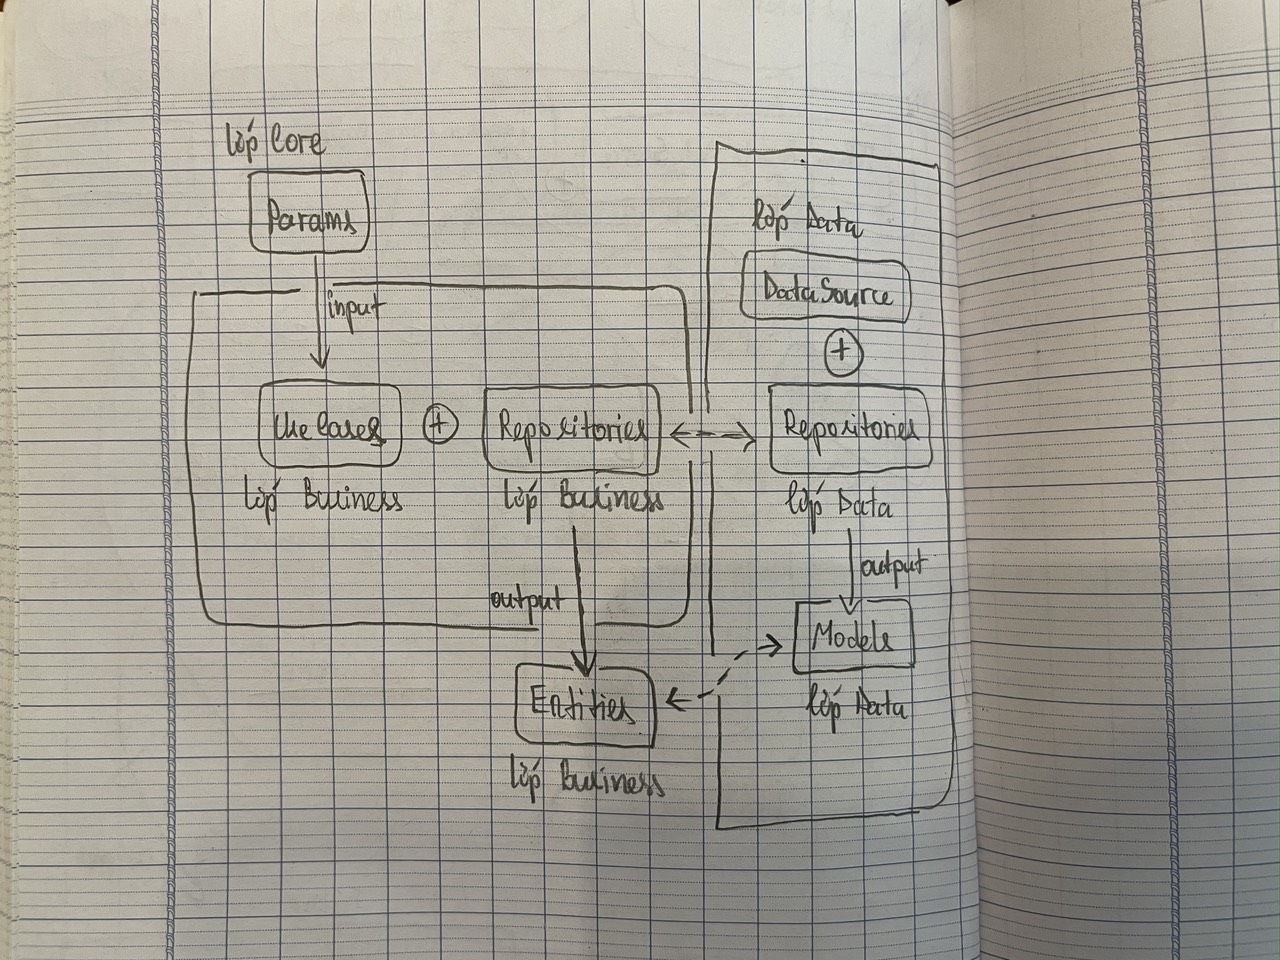 lớp Core
Params
input
UseCases
+
Repositories
lớp Business
lớp Business
output
Entities
lớp Business
lớp Data
DataSource
+
Repositories
lớp Data
output
Models
lớp Data